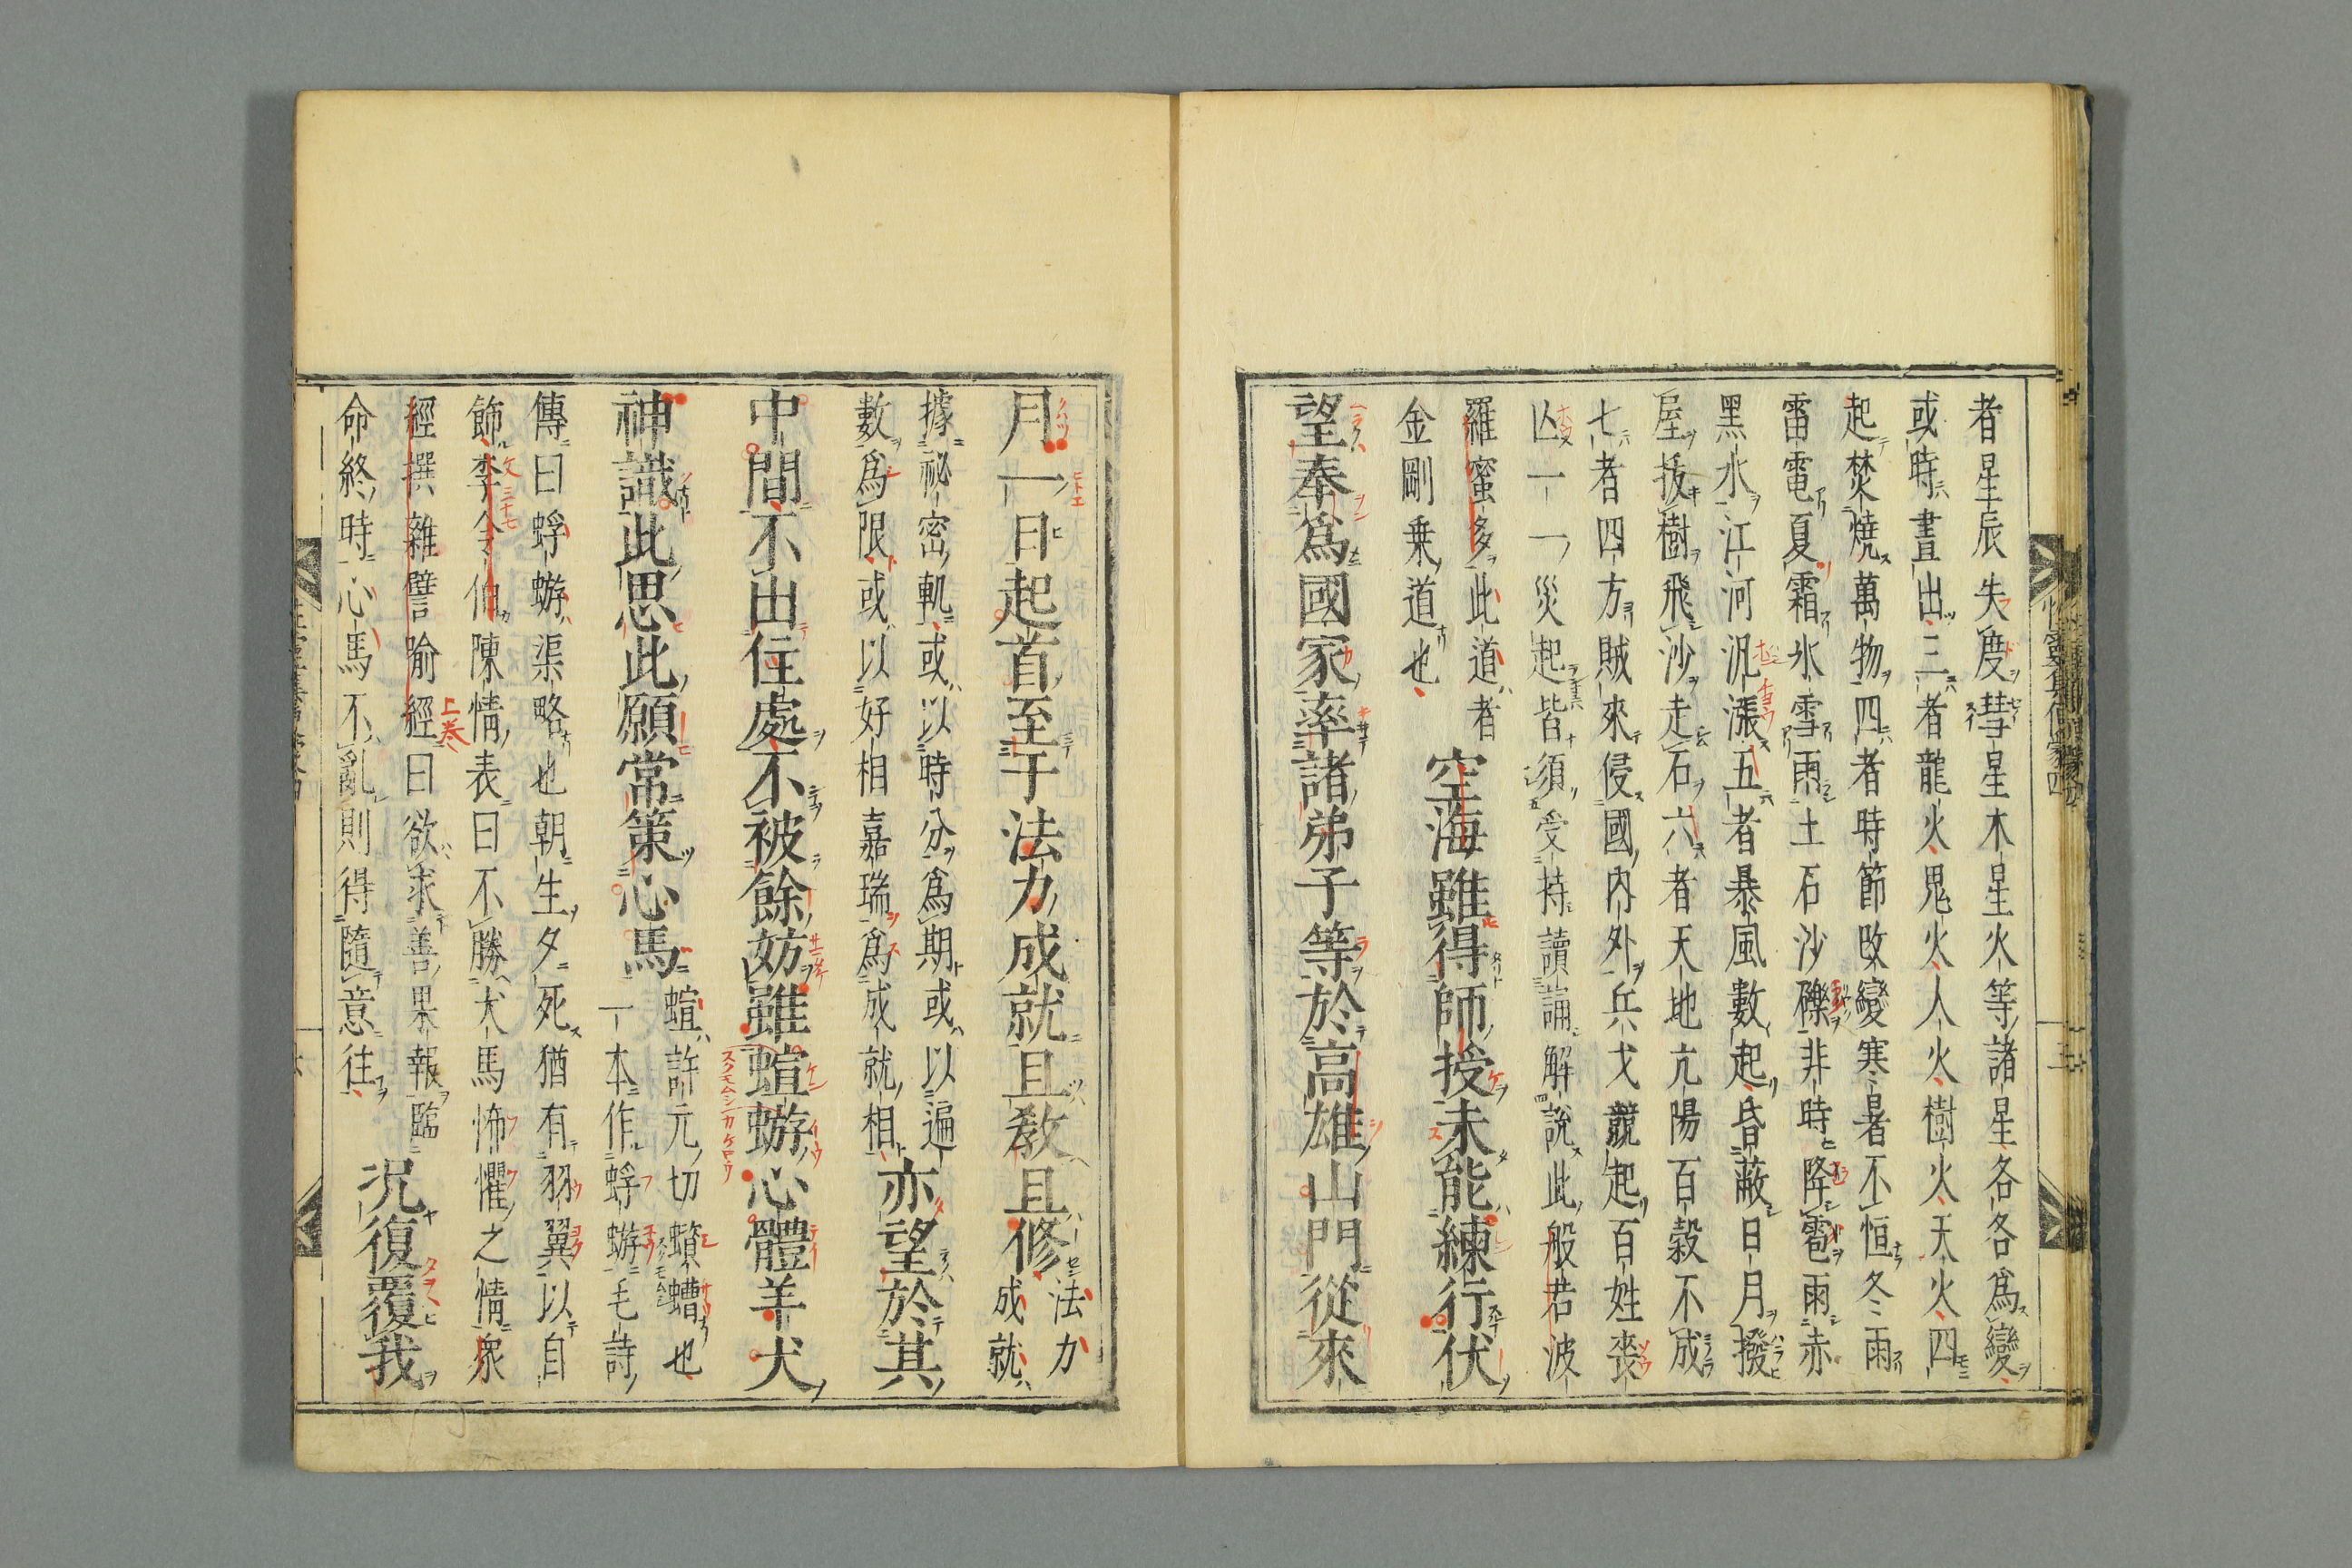 者星辰失度彗星木星火等諸星各各爲變
或時晝出三者龍火鬼火人火樹火天火四
起焚燒萬物四者時節改變寒暑不恒冬雨
雷電夏霜氷雪雨土石沙礫非時降雹雨赤
黑水江河汎漲五者暴風數起昏蔽日月撥
屋拔樹飛沙走石六者天地亢陽百穀不成
七者四方賊來侵國內外兵戈競起百姓喪
亾一一災起皆須受持讀誦解說此般若波
羅蜜多此道者
金剛乗道也
空海雖得師授未能練行伏
望奉爲國家率諸弟子等於高雄山門從來
月一日起首至于法力成就且敎且修
法力
成就
據祕密軌或以時分爲期或以遍
數爲限或以好相嘉瑞爲成就相
亦望於其
中間不出住處不被餘妨雖蝖蝣心體羊犬
神識此思此願常策心馬
蝖許元切蠀螬也
一本作蜉蝣毛詩
傳曰蜉蝣渠略也朝生夕死猶有羽翼以自
飾李令伯陳情表曰不勝犬馬怖懼之情衆
經撰雜譬喻經曰欲求善果報臨
命終時心馬不亂則得隨意往
況復覆我
文三十七
上卷